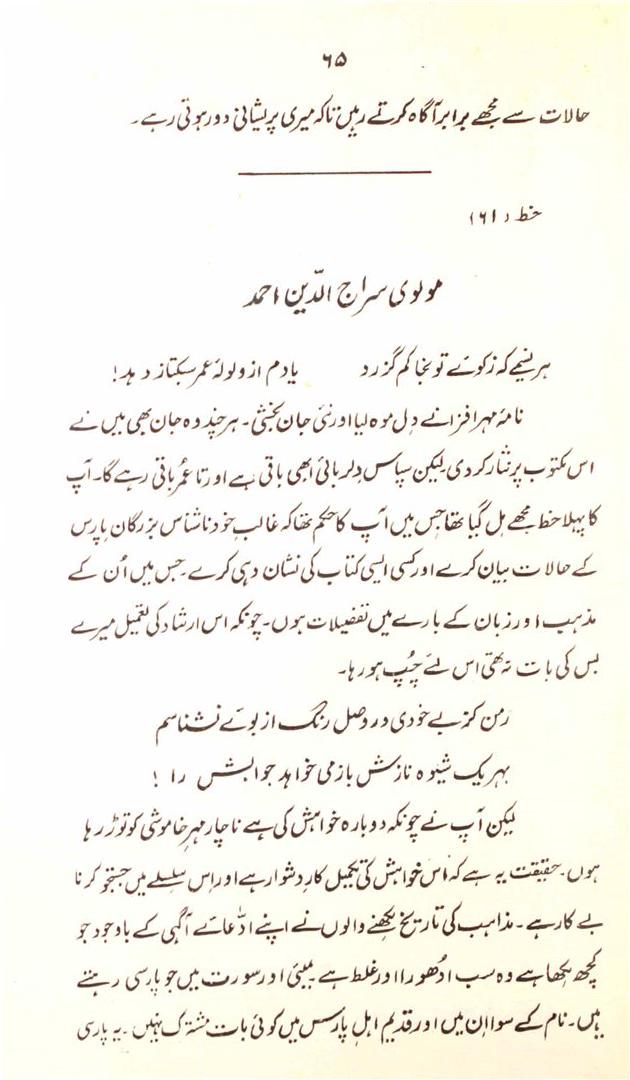 ۶۵
حالات سے مجھے برابر آگاہ کرتے رہیں تاکہ میری پریشانی دور ہوتی رہے۔
خط (۶۱)
مولوی سراج الدّین احمد
ہر نسیمے کہ ز کوئے تو بخاکم گزرد یادم از ولولۂ عمر سبکتاز دہد!
نامۂ مہر افزا نے دل موہ لیا اور نئی جان بخشی۔ ہر چند وہ جان بھی میں نے
اس مکتوب پر نثار کر دی لیکن سپاس دلربائی ابھی باقی ہے اور تا عُمر باقی رہے گا۔ آپ
کا پہلا خط مجھے مل گیا تھا جس میں آپ کا حکم تھا کہ غالبِ خود ناشناس بزرگان پارس
کے حالات بیان کرے اور کسی ایسی کتاب کی نشان دہی کرے۔ جس میں اُن کے
مذہب اور زبان کے بارے میں تفصیلات ہوں۔ چونکہ اس ارشاد کی تعمیل میرے
بس کی بات نہ تھی اس لئے چُپ ہو رہا۔
زمن کز بے خودی در وصل رنگ از بوئے نشناسم
بہر یک شیوہ نازش باز می خواہد جوابش را !
لیکن آپ نے چونکہ دوبارہ خواہش کی ہے ناچار مہرِ خاموشی کو توڑ رہا
ہوں۔ حقیقت یہ ہے کہ اس خواہش کی تکمیل کارِ دشوار ہے اور اس سلسلے میں جستجو کرنا
بے کار ہے۔ مذاہب کی تاریخ لکھنے والوں نے اپنے ادّعائے آگہی کے باوجود جو
کچھ لکھا ہے وہ سب ادُھورا اور غلط ہے بمبئی اور سورت میں جو پارسی رہتے
ہیں۔ نام کے سوا ان میں اور قدیم اہلِ پارس میں کوئی بات مشترک نہیں۔ یہ پارسی